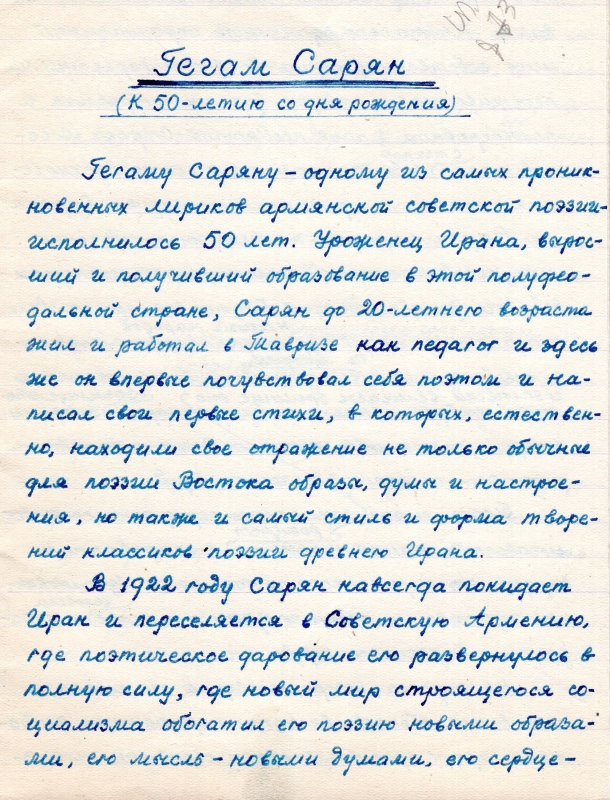 Гегам Сарян
(К 50-летию со дня рождения)
Гегаму Саряну – одному из самых проник-
новенных лириков армянской советской поэзии-
исполнилось 50 лет. Уроженец Ирана, вырос-
ший и получивший образование в этой полуфео-
дальной стране, Сарян до 20-летнего возраста
жил и работал в Тавризе как педагог и здесь
же он впервые почувствовал себя поэтом и на-
писал свои первые стихи, в которых, естествен-
но, находили свое отражение не только обычные
для поэзии Востока образы, думы и настрое-
ния, но также и самый стиль и форма творе-
ний классиков поэзии древнего Ирана.
В 1922 году Сарян навсегда покидает
Иран и переселяется в Советскую Армению,
где поэтическое дарование его развернулось в
полную силу, где новый мир строящегося со-
циализма обогатил его поэзию новыми образа-
ми, его мысль – новыми думами, его сердце –